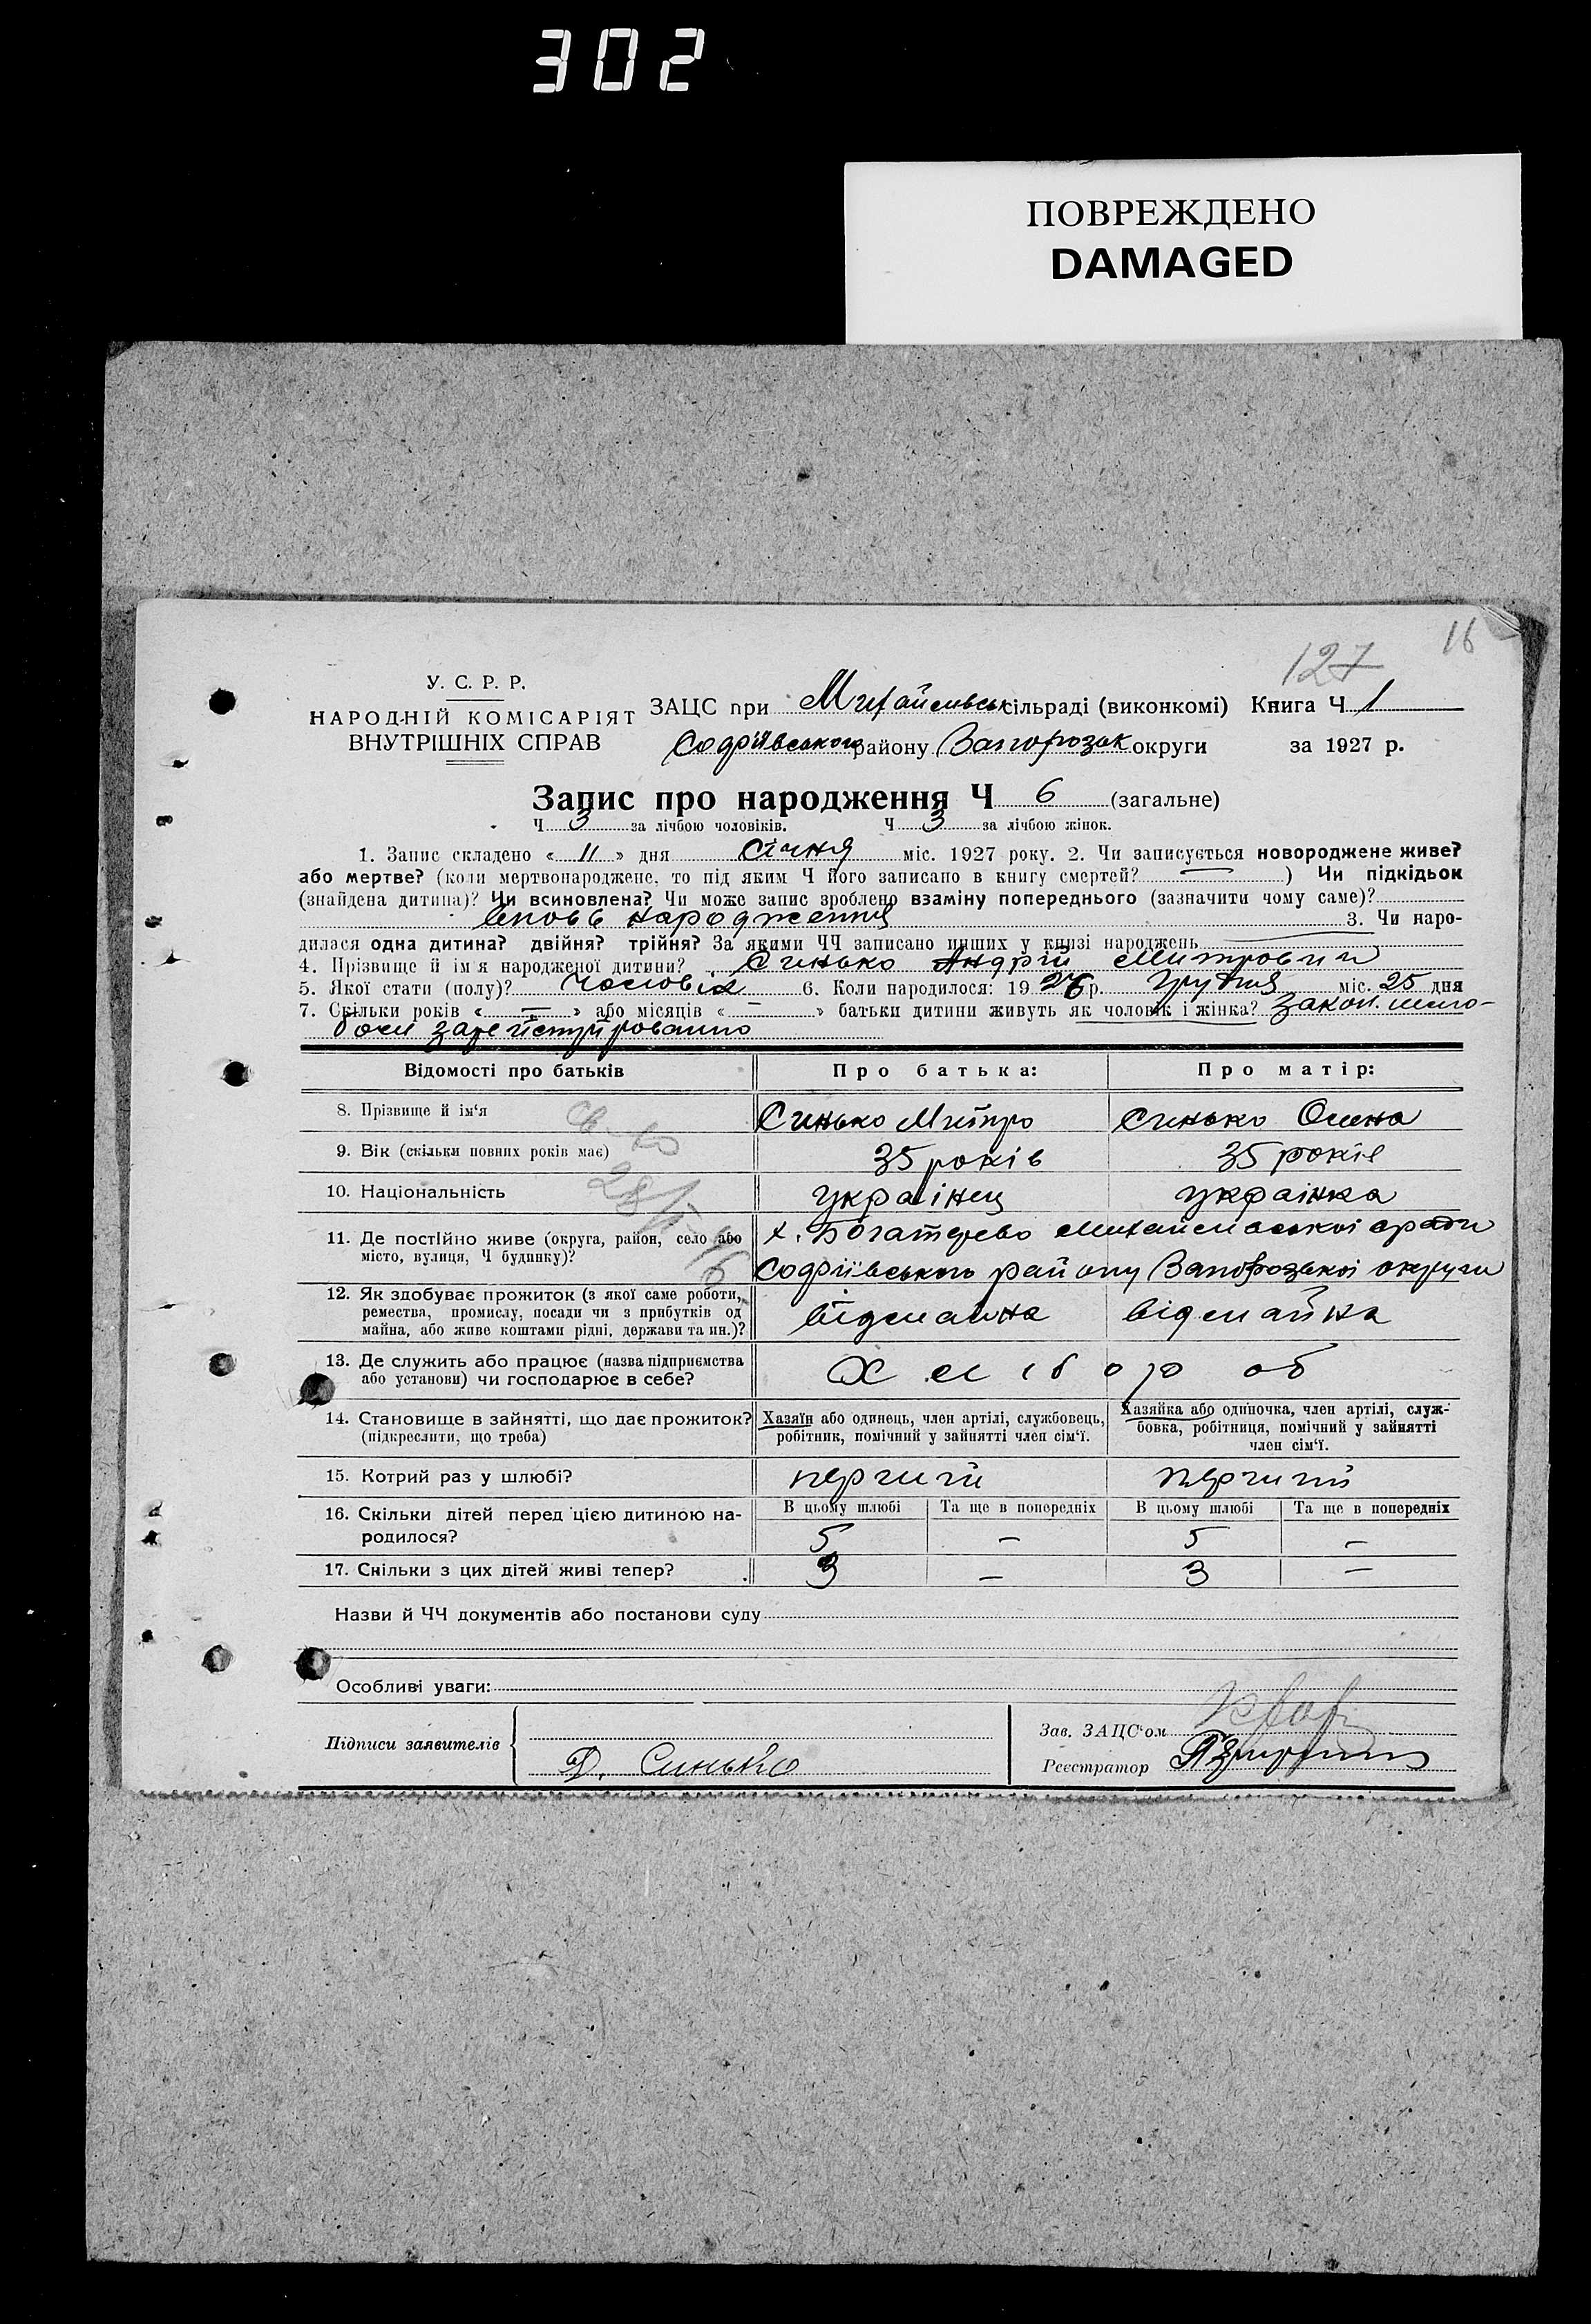 302
ПОВРЕЖДЕНО
DAMAGED
16
127
У. С. Р. Р.
НАРОДНІЙ КОМІСАРІЯТ
ВНУТРІШНІХ СПРАВ
ЗАЦС при Михайлівськ сільраді (виконкомі) Книга Ч 1
Софіївського району Запорозьк округи за 1927 р.
Запис про народження Ч 6 (загальне)
Ч 3 за лічбою чоловіків. Ч 3 за лічбою жінок.
1. Запис складено « 11 » дня Січня міс. 1927 року. 2. Чи записується новороджене живе?
або мертве? (коли мертвонароджене, то під яким Ч його записано в книгу смертей? — ) Чи підкідьок
(знайдена дитина)? Чи всиновлена? Чи може запис зроблено взаміну попереднього (зазначити чому саме)?
вновь народження 3. Чи наро-
дилася одна дитина? двійня? трійня? За якими ЧЧ записано инших у книзі народжень —
4. Прізвище й ім'я народженої дитини? Синько Андрій Митрович
5. Якої стати (полу)? Чоловіх 6. Коли народилося: 1926 р. Грудня міс. 25 дня
7. Скільки років « — » або місяців « — » батьки дитини живуть як чоловік і жінка? Закон. шлю-
бом зарегістріровано
Відомості про батьків Про батька: Про матір:
8. Прізвище й ім'я Синько Митро Синько Олена
9. Вік (скільки повних років має) 35 років 35 років
10. Національність українец українка
11. Де постійно живе (округа, район, село або
місто, вулиця, Ч будинку)?
х. Богатирево Михайлівської с ради
Софіївського району Запорозької округи
12. Як здобуває прожиток (з якої саме роботи,
ремества, промислу, посади чи з прибутків од
майна, або живе коштами рідні, держави та ин.)?
відмайна відмайна
13. Де служить або працює (назва підприємства
або установи) чи господарює в себе?
Хлібороб
14. Становище в зайнятті, що дає прожиток?
(підкреслити, що треба)
Хазяїн або одинець, член артілі, службовець,
робітник, помічний у зайнятті член сім'ї.
Хазяйка або одиночка, член артілі, служ-
бовка, робітниця, помічний у зайнятті
член сім'ї.
15. Котрий раз у шлюбі? перчий перчий
В цьому шлюбі Та ще в попередніх В цьому шлюбі Та ще в попередніх
16. Скільки дітей перед цією дитиною на-
родилося?
5 — 5 —
17. Скільки з цих дітей живі тепер? 3 — 3 —
Назви й ЧЧ документів або постанови суду
Особливі уваги:
Підписи заявителів
Д. Синько
Зав. ЗАЦС'ом
Реєстратор